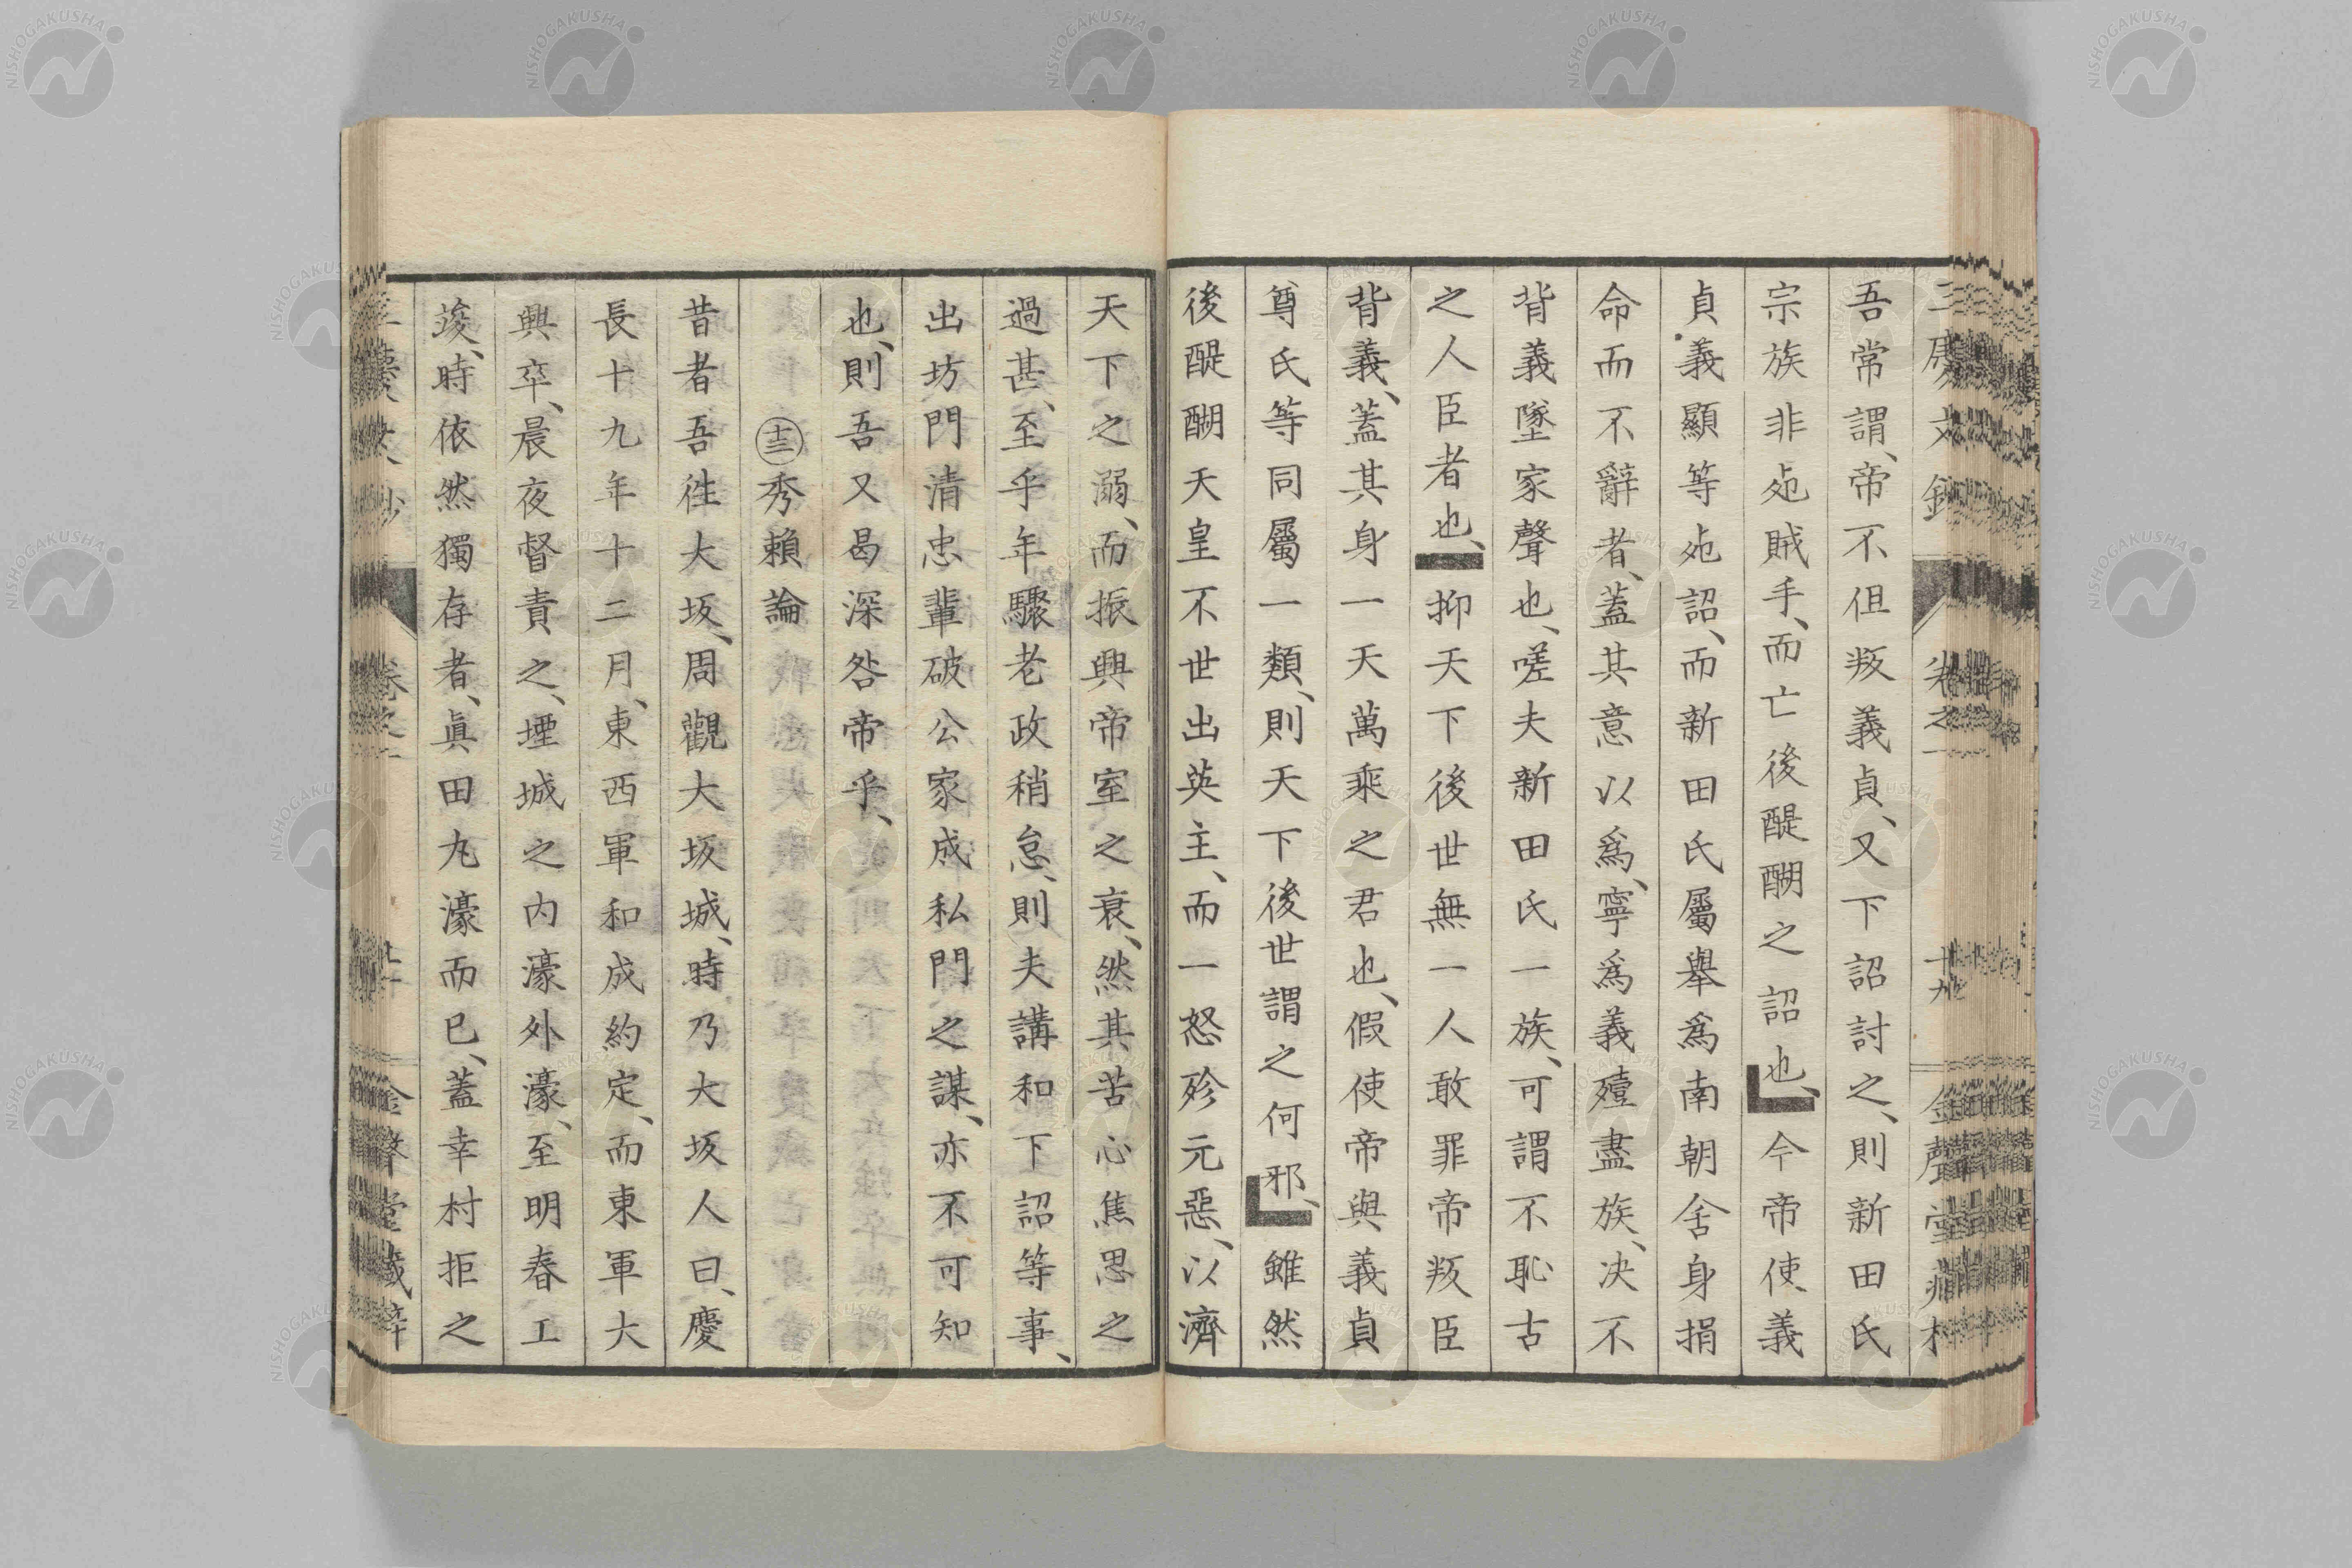 吾常謂、帝不但叛義貞、又下詔討之、則新田氏
宗族非死賊手、而亡後醍醐之詔也、今帝使義
貞義顯等死詔、而新田氏屬舉爲南朝舍身捐
命而不辭者、蓋其意以爲、寧爲義殪盡族、决不
背義墜家聲也、嗟夫新田氏一族、可謂不恥古
之人臣者也、抑天下後世無一人敢罪帝叛臣
背義、蓋其身一天萬乘之君也、假使帝與義貞
尊氏等同屬一類、則天下後世謂之何邪、雖然
後醍醐天皇不世出英主、而一怒殄元惡、以濟
天下之溺、而振興帝室之衰、然其苦心焦思之
過甚、至乎年驟老政稍怠、則夫講和下詔等事、
出坊門清忠輩破公家成私門之謀、亦不可知
也、則吾又曷深咎帝乎、
㊉三秀賴論
昔者吾徃大坂、周觀大坂城、時乃大坂人曰、慶
長十九年十二月、東西軍和成約定、而東軍大
興卒、晨夜督責之、堙城之内濠外濠、至明春工
竣、時依然獨存者、眞田丸濠而已、蓋幸村拒之
卷之一
金聲堂藏梓
NISHOGAKUSHA